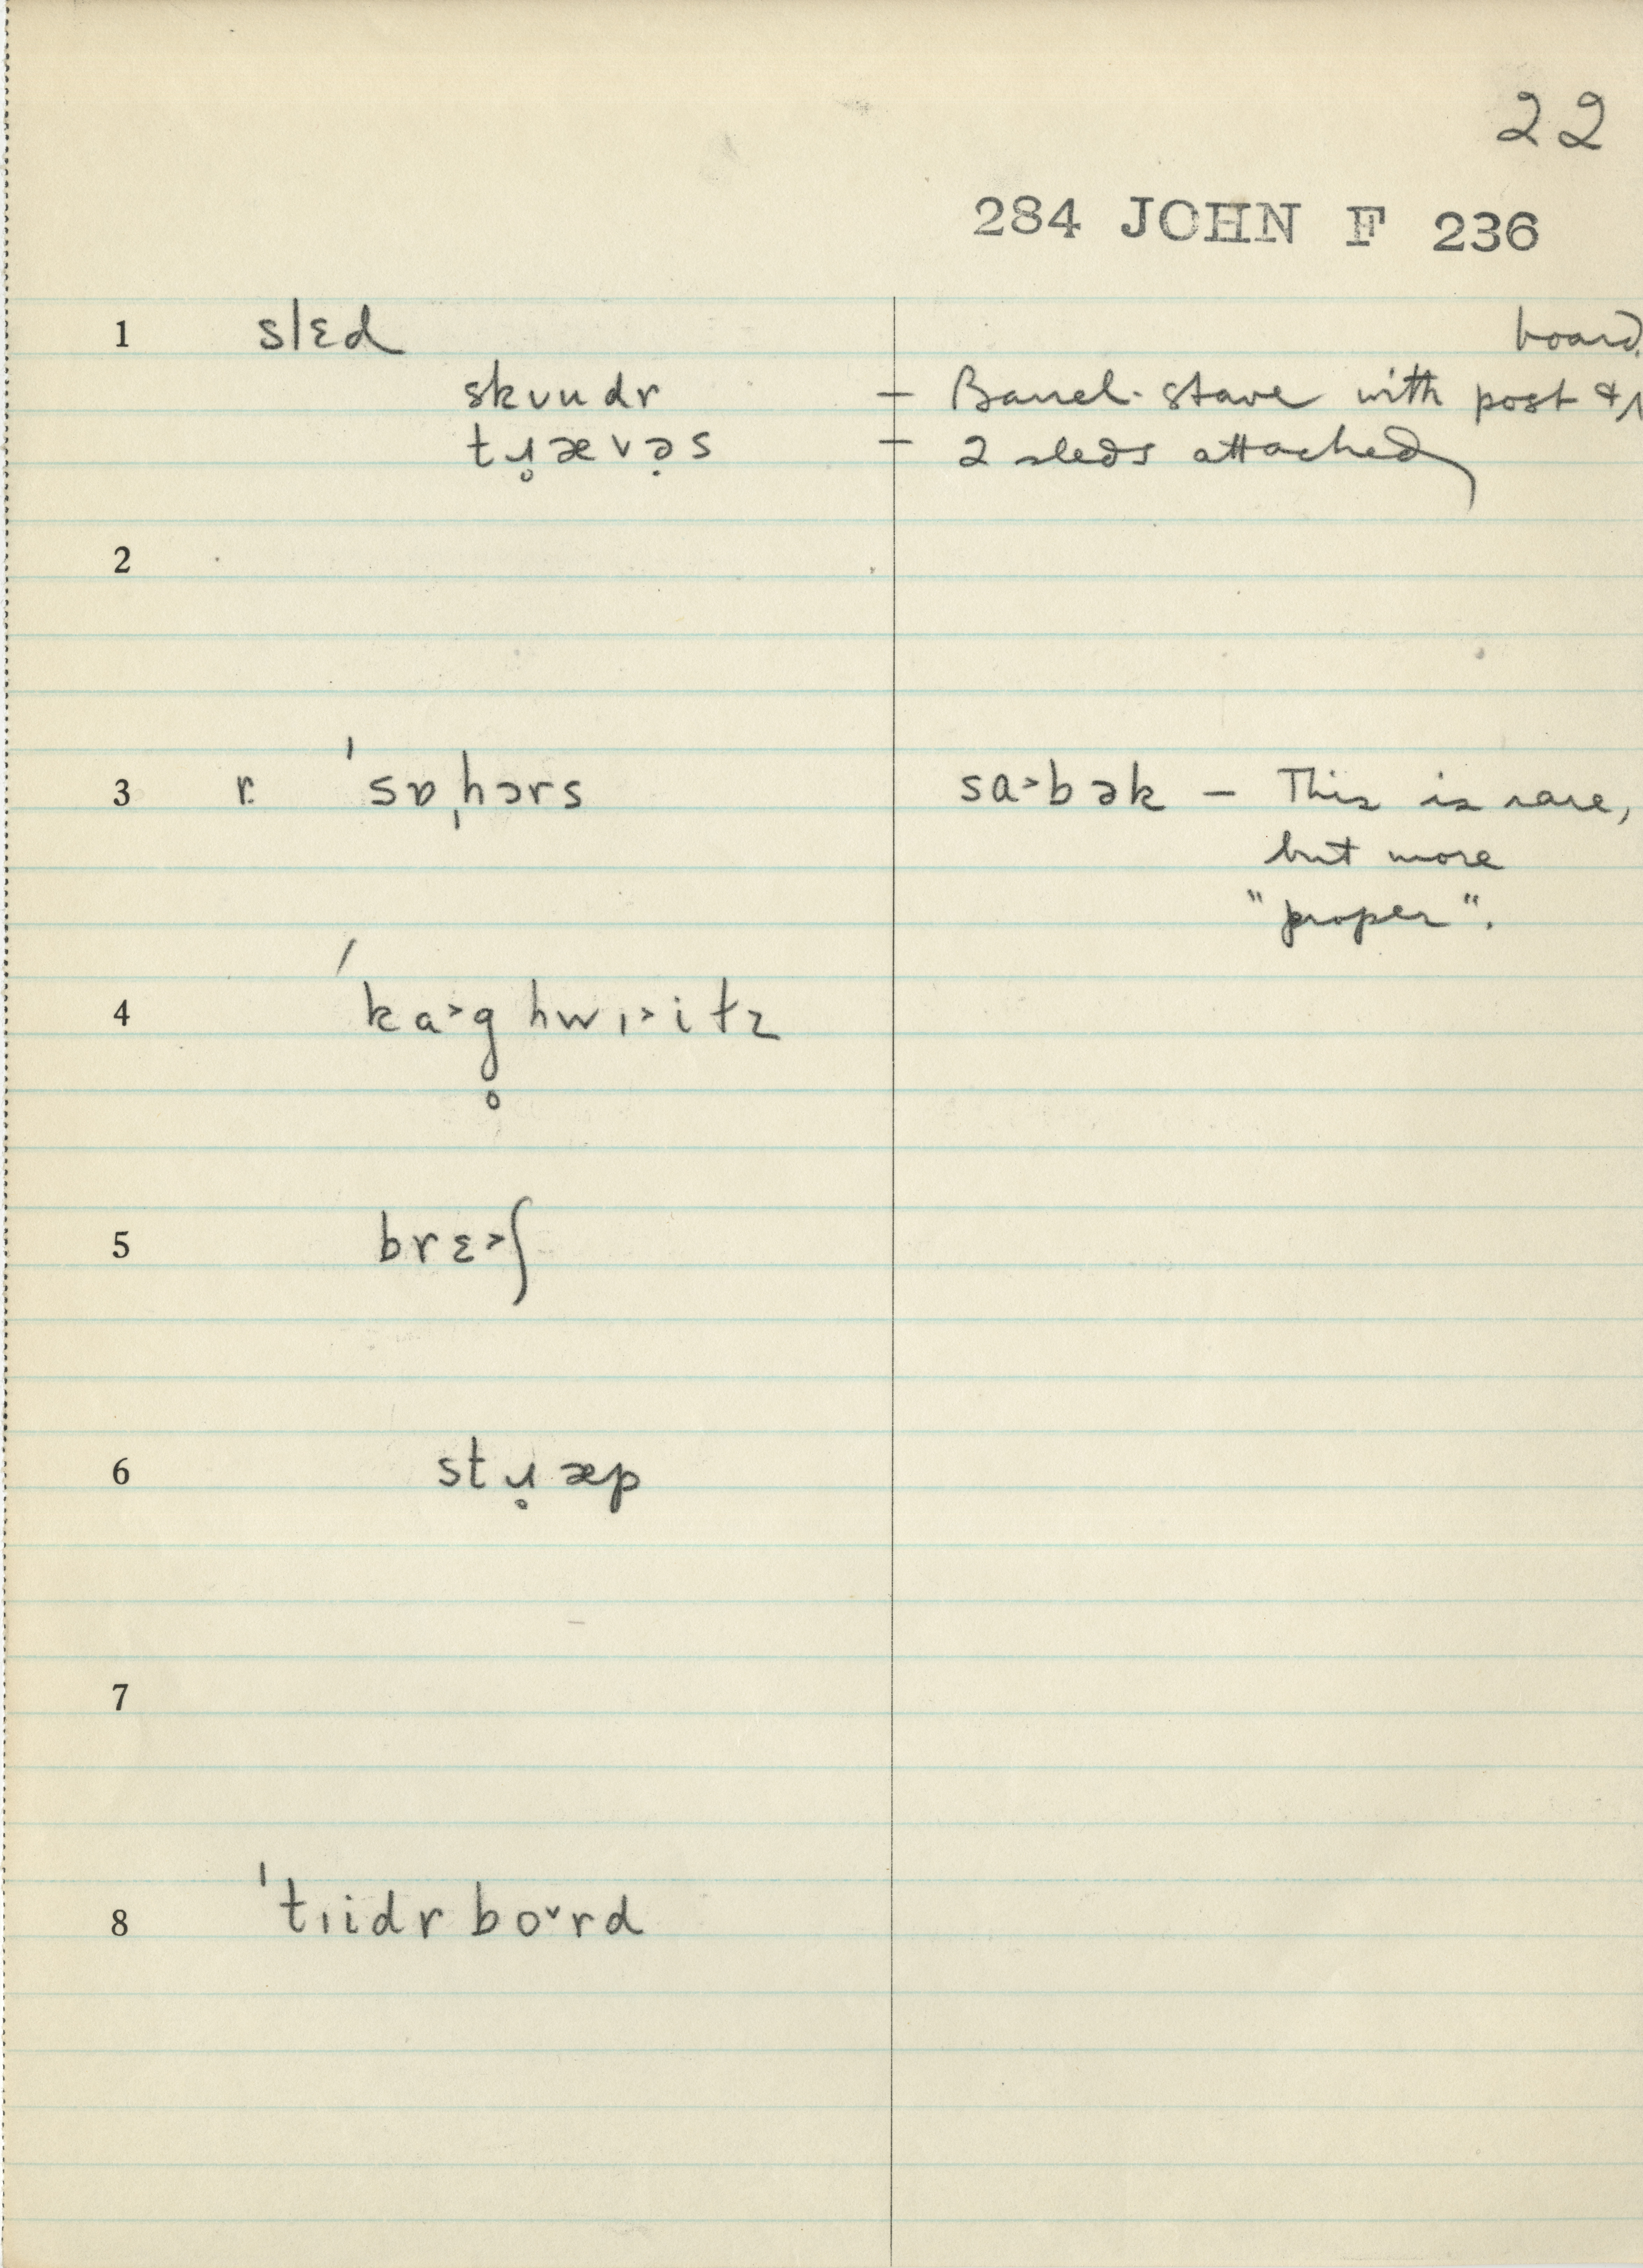 22
284 JOHN F 236
1 slɛd board
skuudr – Barrel-stave with post &
tɹ̥ævə̣s – 2 sleds attached
2
3 r. ˈsɒˌhɔrs sa˃bək – This is rare,
but more
"proper".
4 ˈka˃g̥ hwɪ˃itz
5 brɛ˃ʃ
6 stɹ̥æp
7
8 ˈtɪidr bo˅rd